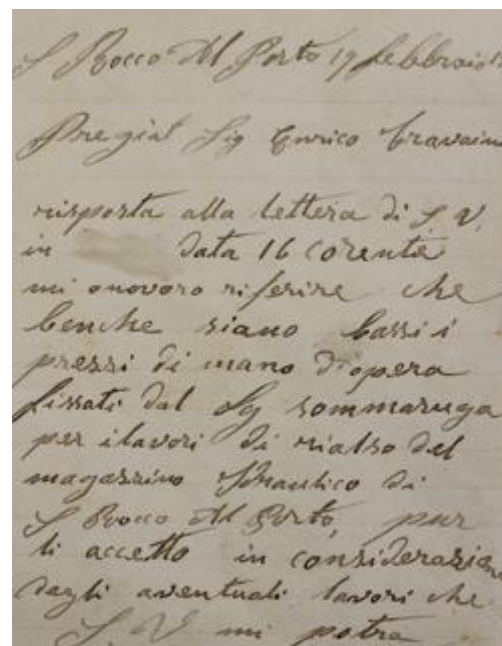 S Rocco Al Porto 19 febbraio
Pregiat Sig Enrico
risposta alla lettera di S. V.
in data 16 corente
mi onovoro riferire che
benche siano bassi i
pressi di mano d'opera
fissati dal Sg sommaruga
per i lavori di rialso del
magazzino Idraulico di
S Rocco Al Porto, pur
li accetto in considerazione
degli aventuali lavori che
S. V. mi potra